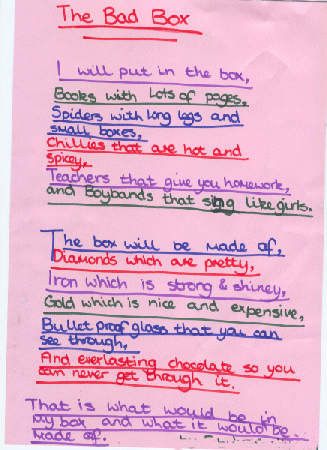 The Bad Box
I will put in the box,
Books with Lots of pages,
Spiders with long legs and
small boxes,
Chillies that are hot and
spicey,
Teachers that give you homework,
and Boybands that sing like girls.
The box will be made of,
Diamonds which are pretty,
Iron which is strong & shiney,
Gold which is nice and expensive,
Bullet proof glass that you can
see through,
And everlasting chocolate so you
can never get through it.
That is what would be in
my box and what it would be
made of.